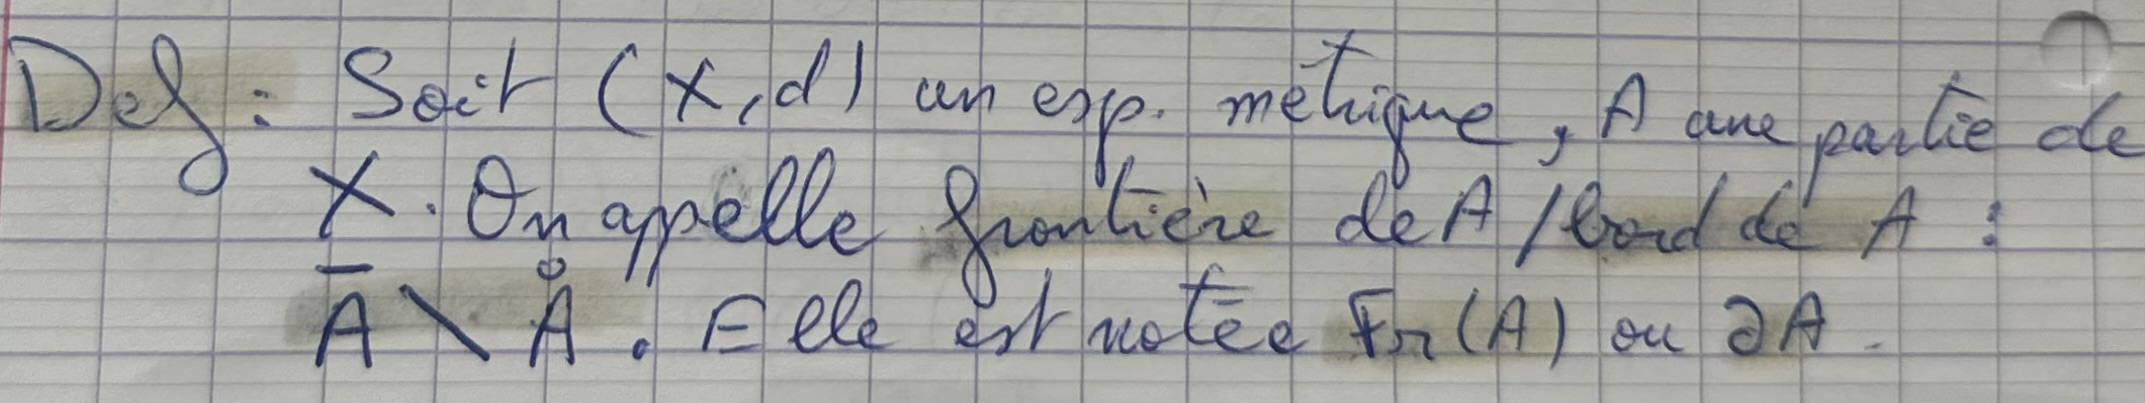 Def : Soit (X, d) un esp. métrique, A une partie de
X. On appelle frontière de A / bord de A :
A̅ \ Å. Elle est notée Fr(A) ou ∂A.